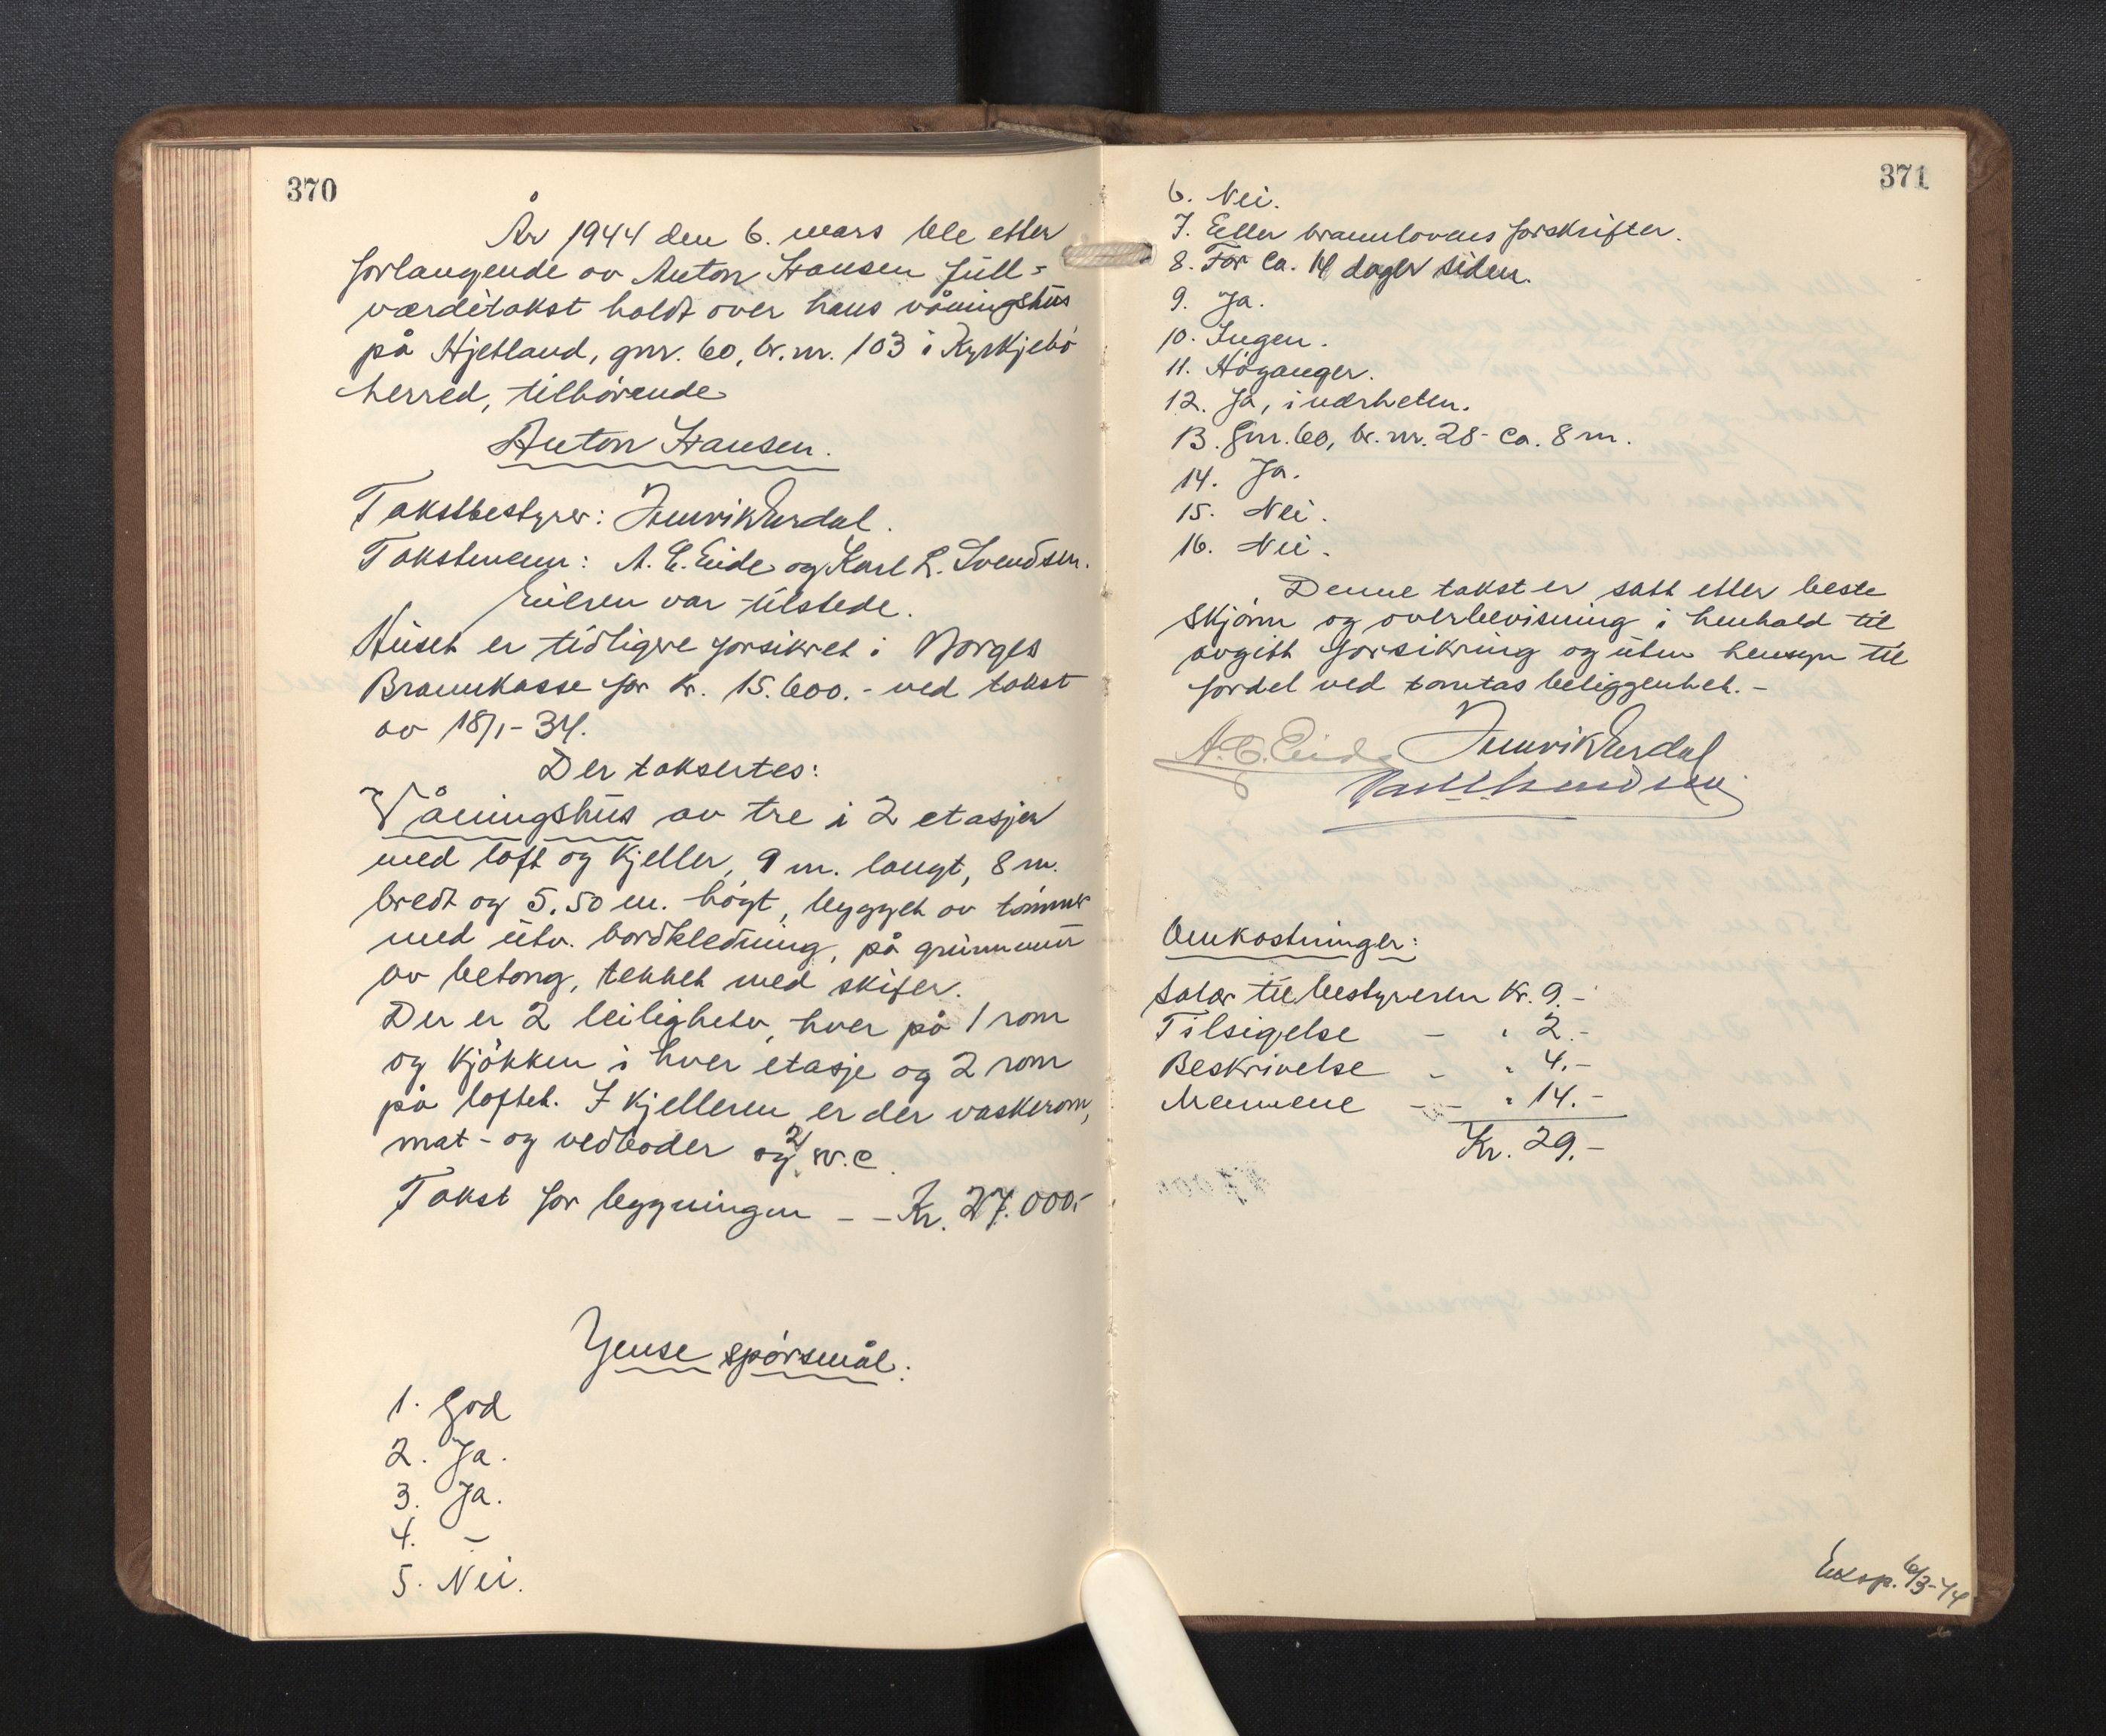 370
År 1944 den 6. mars ble etter
forlangende av Anton Hansen full-
værditakst holdt over hans våningshus
på Hjetland, gnr. 60, br. nr. 103 i Kyrkjebö
herred, tilhörende
Anton Hansen.
Takstbestyrer: Henrik Erdal.
Takstmenn: A. E. Eide og Karl L. Svendsen.
Eieren var tilstede.
Huset er tidligere forsikret i Norges
Brannkasse for kr. 15.600.- ved takst
av 18/1-34.
Der taksertes:
Våningshus av tre i 2 etasjer
med loft og kjeller, 9 m. langt, 8 m.
bredt og 5.50 m. högt, bygget av tömmer
med utv. bordkledning, på grunnmur
av betong, tekket med skifer.
Der er 2 leiligheter, hver på 1 rom
og kjökken i hver etasje og 2 rom
på loftet. I kjelleren er der vaskerom,
mat- og vedboder og 2 w.c.
Takst for bygningen - - Kr. 27.000.-
Ymse spörsmål:
1. God
2. Ja.
3. Ja.
4. -
5. Nei.
371
6. Nei.
7. Etter brannlovens forskrifter.
8. For ca. 14 dager siden.
9. Ja.
10. Ingen.
11. Höyanger.
12. Ja, i nærheten.
13. Gnr. 60, br. nr. 28 - ca. 8 m.
14. Ja.
15. Nei.
16. Nei.
Denne takst er satt etter beste
skjönn og overbevisning i henhold til
avgitt forsikring og uten hensyn til
fordel ved tomtas beliggenhet. -
A. E. Eide Henrik Erdal
Karl L. Svendsen
Omkostninger:
Salær til bestyreren Kr. 9.-
Tilsigelse - " 2.-
Beskrivelse - " 4.-
Mennene - - " 14.-
Kr. 29.-
Eksp. 6/3-44